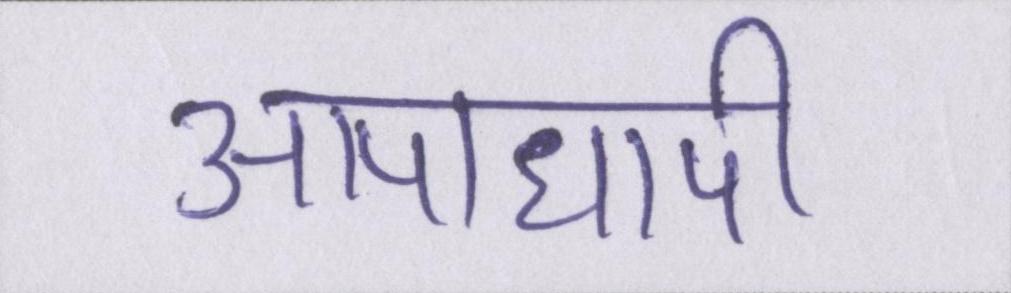 आपाधापी